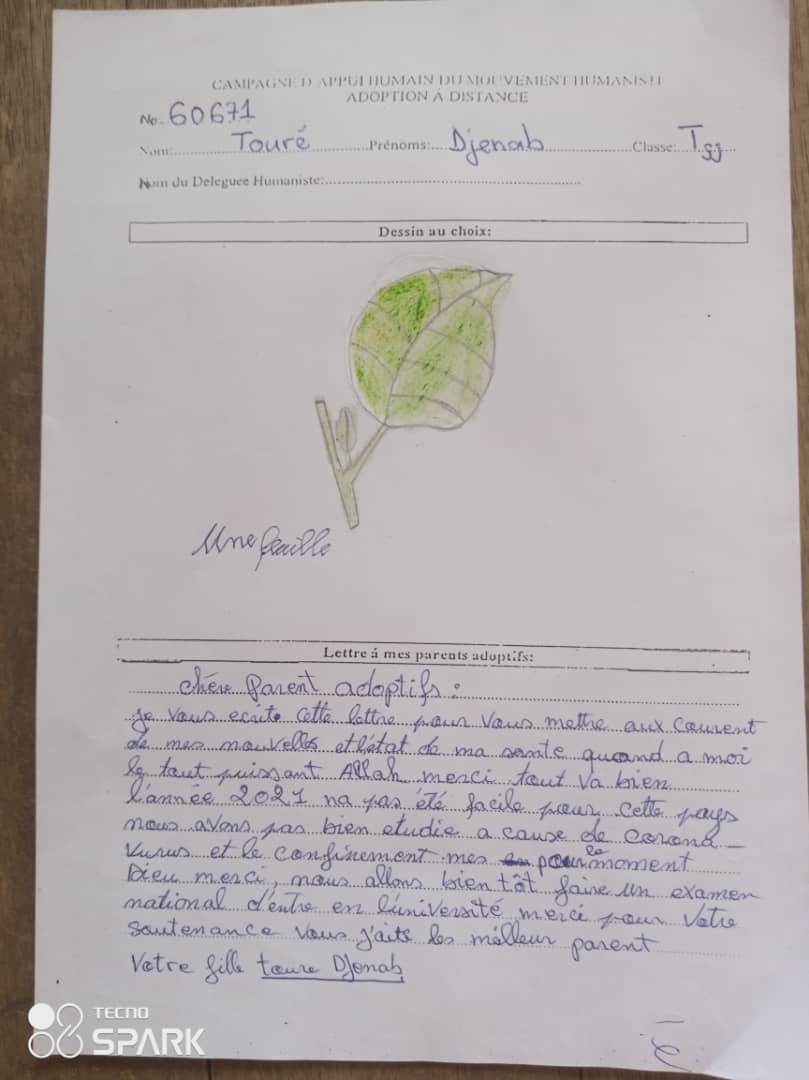 CAMPAGNE D'APPUI HUMAIN DU MOUVEMENT HUMANISTE
ADOPTION À DISTANCE
No. 60671
Nom: Touré Prénoms: Djenab Classe: Tss
Nom du Deleguee Humaniste:
Dessin au choix:
Une feuille
Lettre á mes parents adoptifs:
chère Parent adoptifs :
je vous ecrite cette lettre pour vous mettre aux courent
de mes nouvelles et l'état de ma sante quand a moi
le tout puissant Allah merci tout va bien
l'année 2021 na pas été facile pour cette pays
nous avons pas bien etudie a cause de corona-
vurus et le confinement mes pour le moment
Dieu merci, nous allons bientôt faire un examen
national d'entre en l'université merci pour votre
soutenance vous j'aite les meilleur parent
Votre fille toure Djenab
TECNO
SPARK